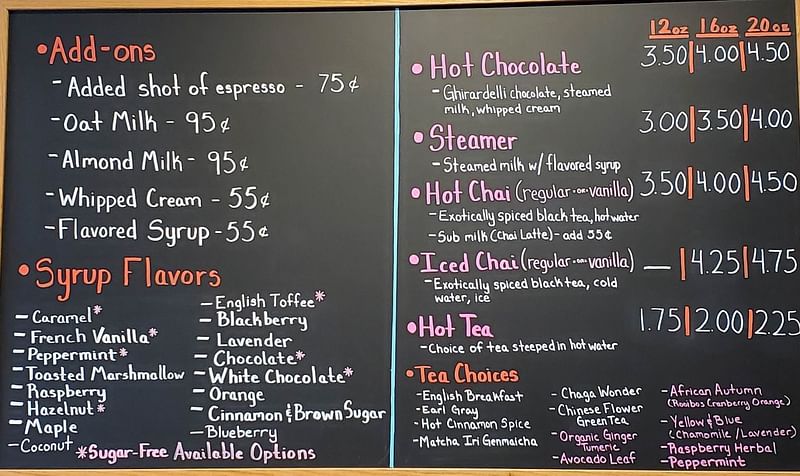 •Add-ons
- Added shot of espresso - 75¢
- Oat Milk - 95¢
- Almond Milk - 95¢
- Whipped Cream - 55¢
- Flavored Syrup - 55¢
•Syrup Flavors
- Caramel*
- French Vanilla*
- Peppermint*
- Toasted Marshmallow
- Raspberry
- Hazelnut*
- Maple
- Coconut
- English Toffee*
- Blackberry
- Lavender
- Chocolate*
- White Chocolate*
- Orange
- Cinnamon & Brown Sugar
- Blueberry
*Sugar-Free Available Options
12oz 16oz 20oz
•Hot Chocolate 3.50|4.00|4.50
- Ghirardelli chocolate, steamed
milk, whipped cream
•Steamer 3.00|3.50|4.00
- Steamed milk w/ flavored syrup
•Hot Chai (regular -or- vanilla) 3.50|4.00|4.50
- Exotically spiced black tea, hot water
- Sub milk (Chai Latte) - add 55¢
•Iced Chai (regular -or- vanilla) — |4.25|4.75
- Exotically spiced black tea, cold
water, ice
•Hot Tea 1.75|2.00|2.25
- Choice of tea steeped in hot water
•Tea Choices
- English Breakfast
- Earl Gray
- Hot Cinnamon Spice
- Matcha Iri Genmaicha
- Chaga Wonder
- Chinese Flower
Green Tea
- Organic Ginger
Tumeric
- Avocado Leaf
- African Autumn
(Rooibos Cranberry Orange)
- Yellow & Blue
(Chamomile / Lavender)
- Raspberry Herbal
- Peppermint